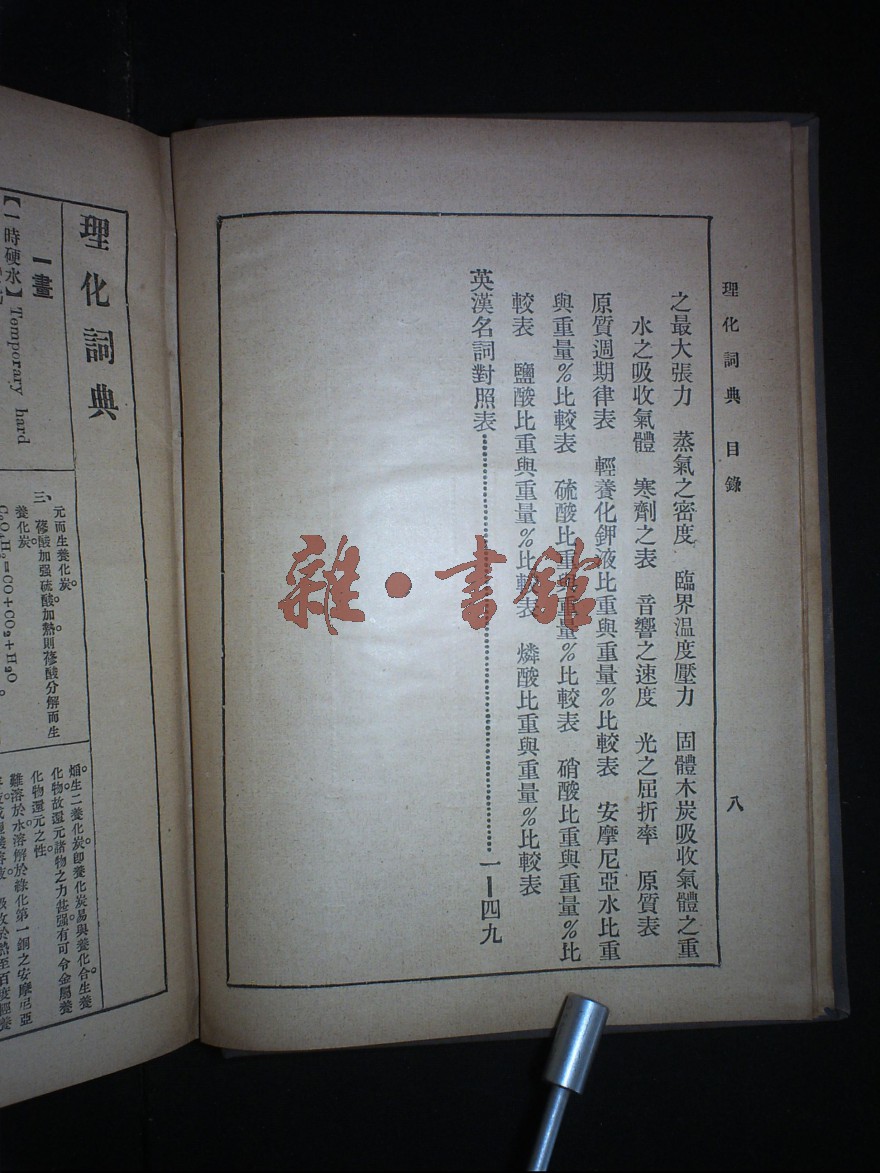 理化詞典 目錄 八
之最大張力 蒸氣之密度 臨界溫度壓力 固體木炭吸收氣體之重
水之吸收氣體 寒劑之表 音響之速度 光之屈折率 原質表
原質週期律表 輕養化鉀液比重與重量%比較表 安摩尼亞水比重
與重量%比較表 硫酸比重與重量%比較表 硝酸比重與重量%比
較表 鹽酸比重與重量%比較表 燐酸比重與重量%比較表
英漢名詞對照表 一—四九
雜·書館
理化詞典
一畫
【一時硬水】Temporary hard
元而生養化炭。
三、蓚酸加强硫酸加熱則蓚酸分解而生
養化炭。
=CO+CO₂+H₂O
煩生二養化炭即養化炭易與養化合生養
化物故還元諸物之力甚强有可令金屬養
化物還元之性。
難溶於水溶解於綠化第一銅之安摩尼亞